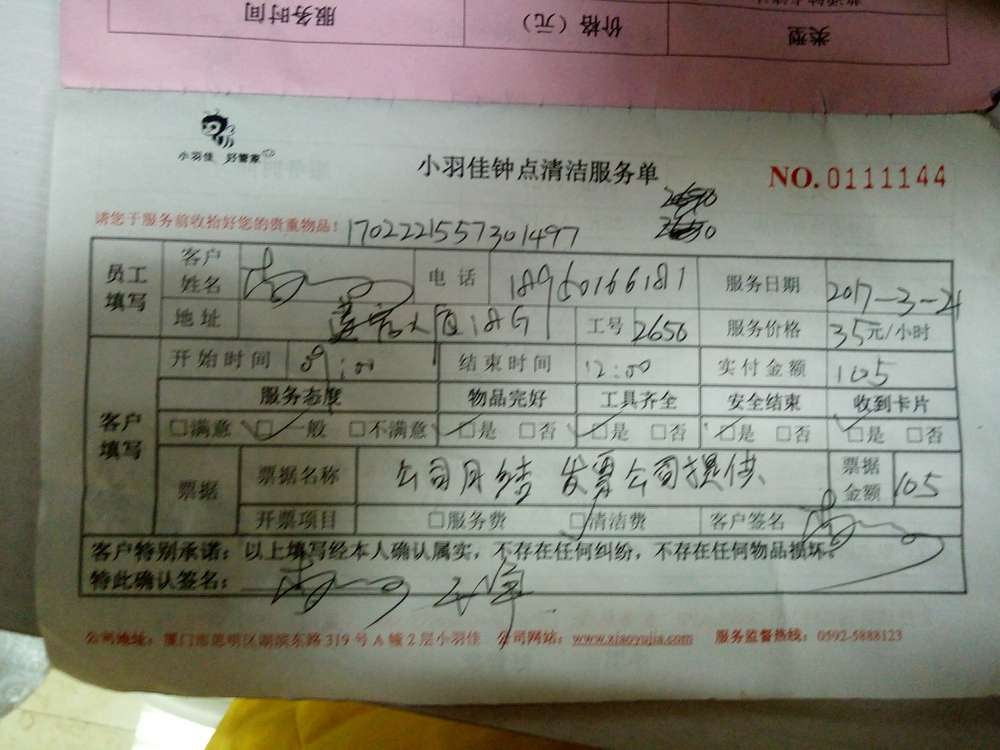 服务时间 价格（元） 类型
小羽佳 好管家
小羽佳钟点清洁服务单 NO.0111144
请您于服务前收拾好您的贵重物品！ 1702221557301497 2650
员工填写 客户姓名 电话 18960166181 服务日期 2017-3-21
地址 工号 2650 服务价格 35元/小时
客户填写 开始时间 9:00 结束时间 12:00 实付金额 105
服务态度 物品完好 工具齐全 安全结束 收到卡片
□满意 □一般 □不满意 □是 □否 □是 □否 □是 □否 □是 □否
票据 票据名称 公司月结 发票公司提供 票据金额 105
开票项目 □服务费 □清洁费 客户签名
客户特别承诺：以上填写经本人确认属实，不存在任何纠纷，不存在任何物品损坏。
特此确认签名：
公司地址：厦门市思明区湖滨东路319号A幢2层小羽佳 公司网站：www.xiaoyujia.com 服务监督热线：0592-5888123